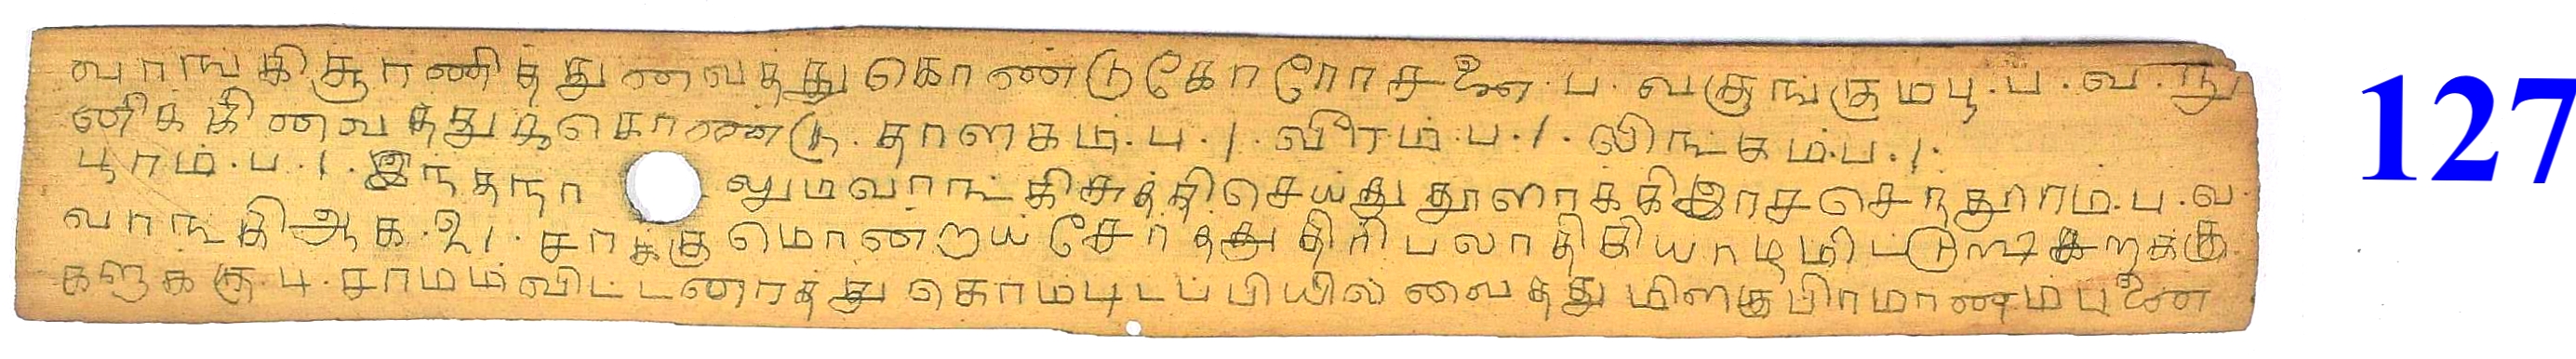 வாங்கி சூரணித்து வைத்து கொண்டு கோரோசனை . ப . வ குங்குமபூ . ப . வ . நு
ணிக்கி வைத்து கொண்டு . தாளகம் . ப . / . வீரம் . ப . / . லிங்கம் . ப . / .
பூரம் . ப . / . இந்தநா லும வாங்கி சுத்தி செய்து தூளாக்கி இரச செந்தூரம் . ப . வ
வாங்கி ஆக . உ / . சரக்கு மொன்றய் சேர்த்து திரிபலாதி கியாழமிட்டு
களுக்கு . ப . சாமம் விட்டரைத்து கொம்பு டப்பியில் வைத்து மிளகு பிரமாணம் பனை
127